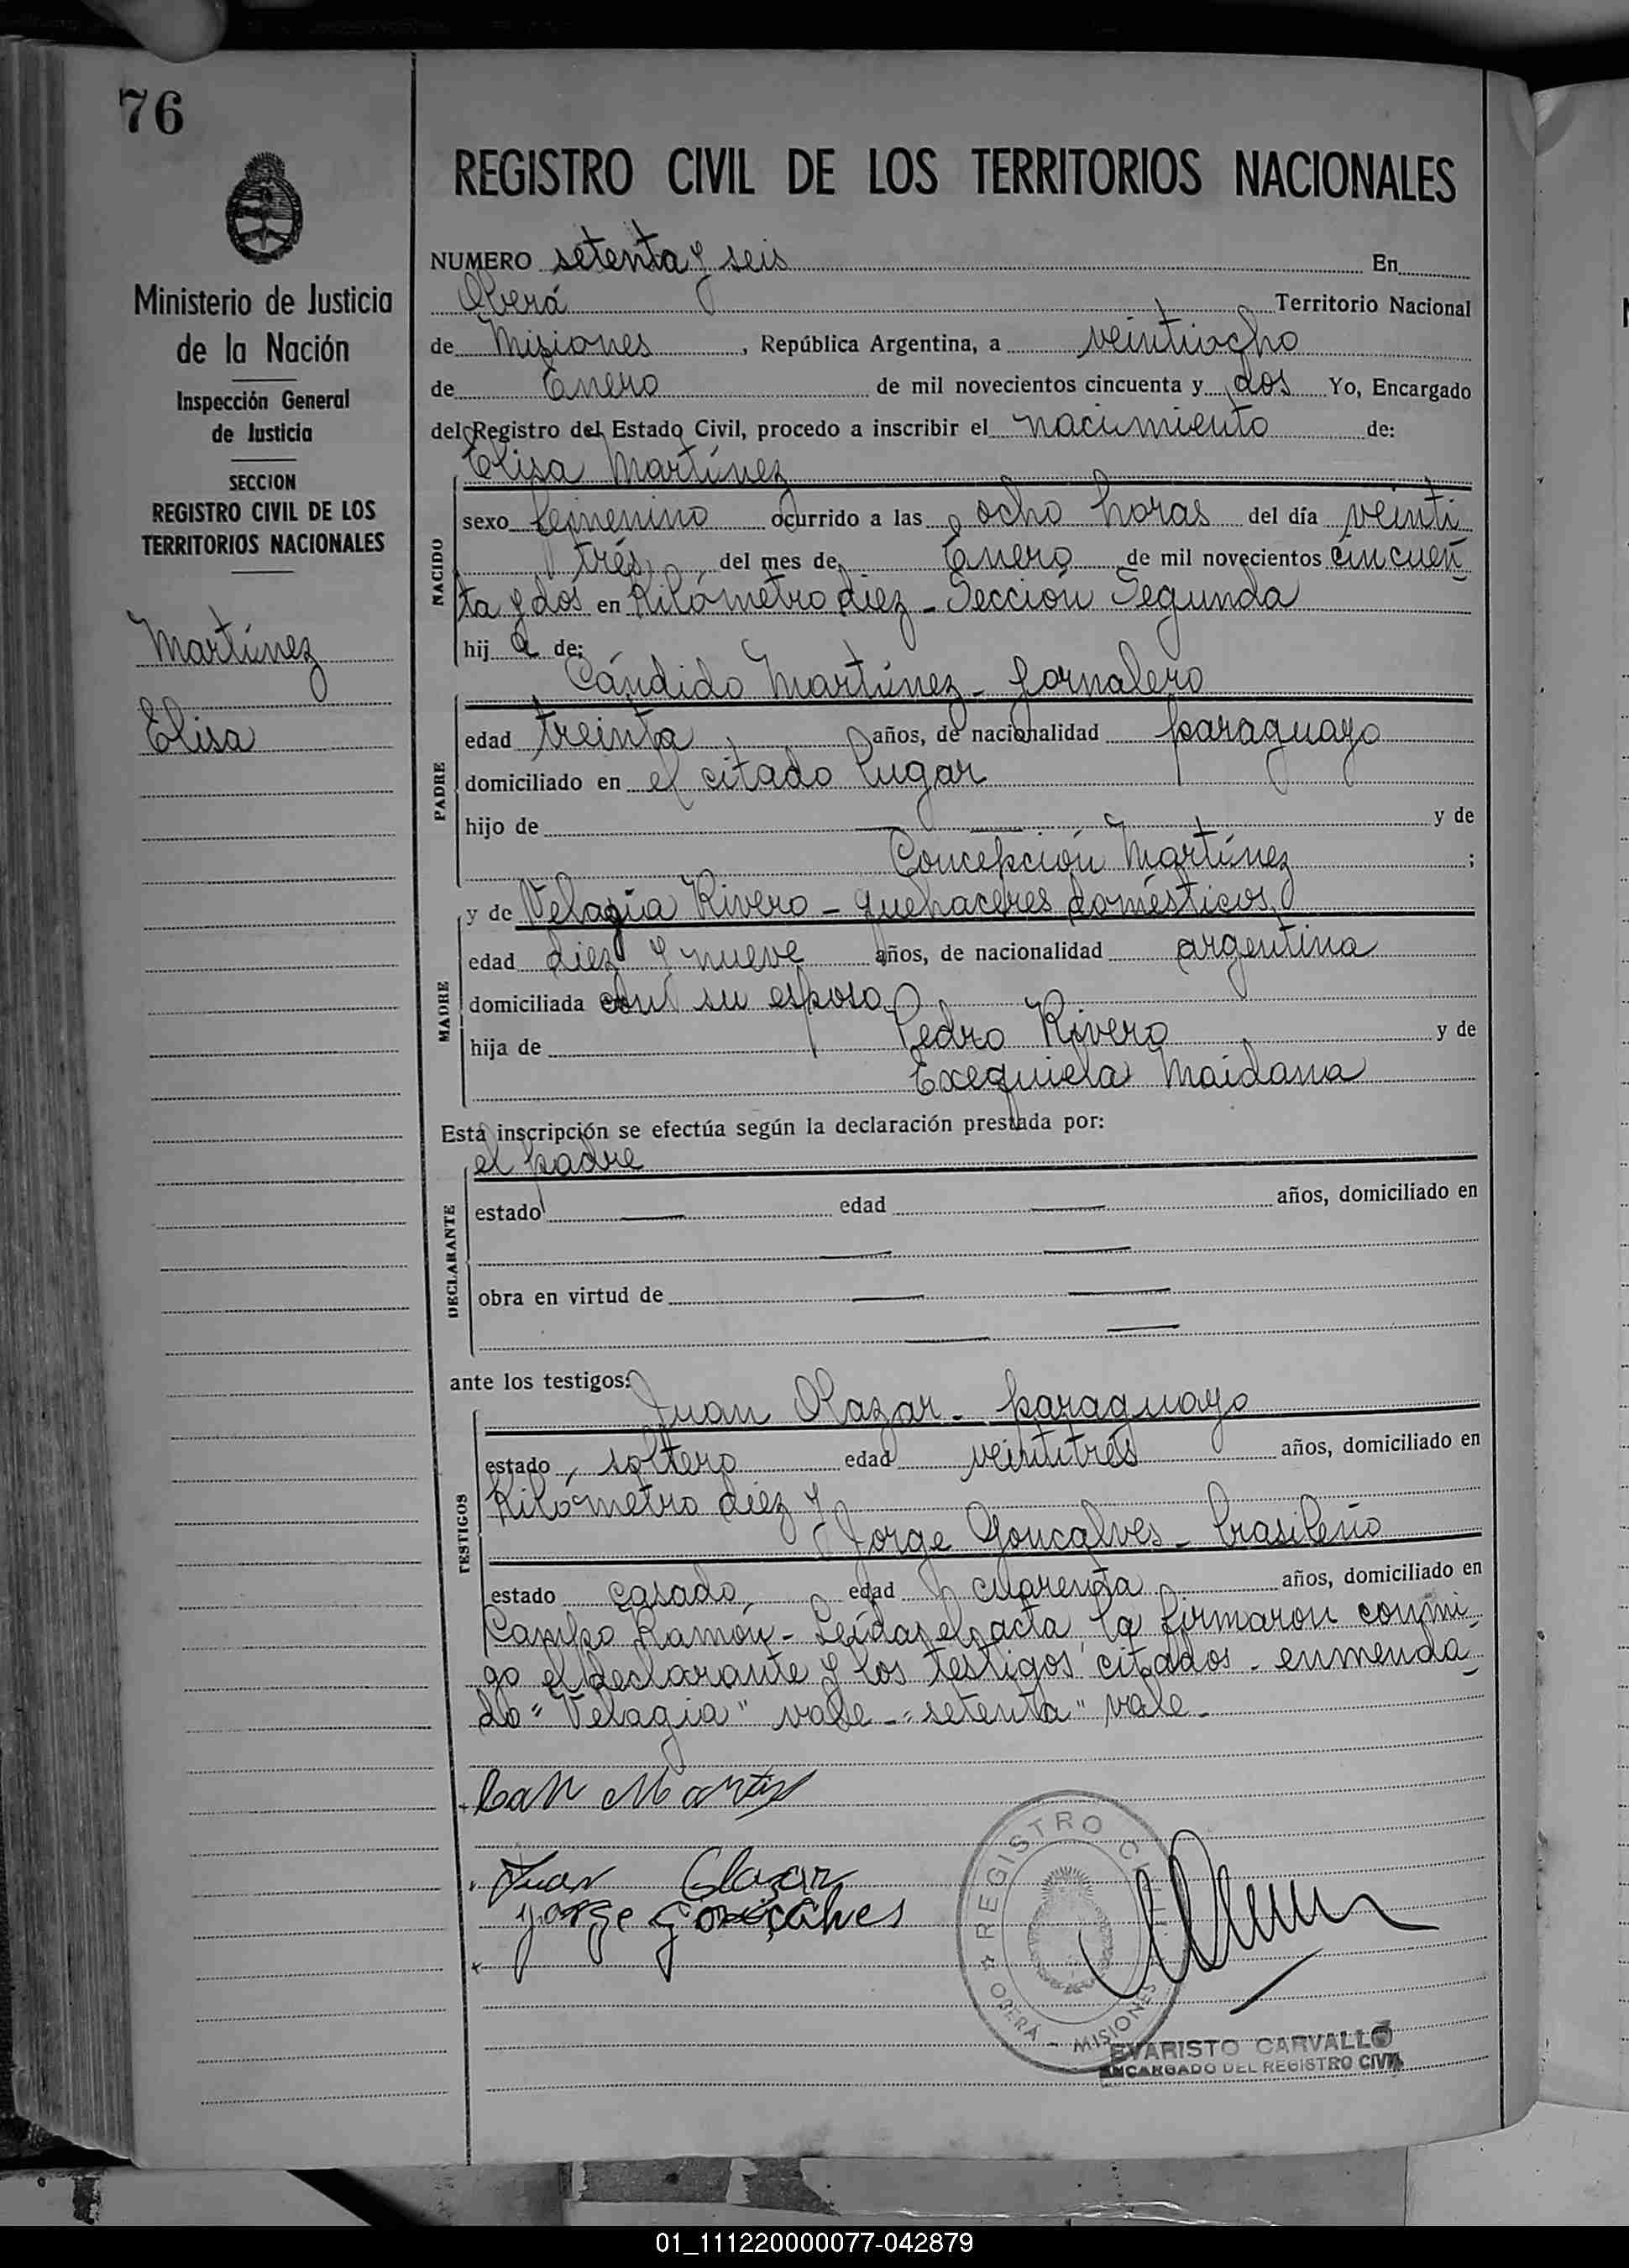 76
Ministerio de Justicia
de la Nación
Inspección General
de Justicia
SECCION
REGISTRO CIVIL DE LOS
TERRITORIOS NACIONALES
Martínez
Elisa
REGISTRO CIVIL DE LOS TERRITORIOS NACIONALES
NUMERO setenta y seis En
Oberá Territorio Nacional
de Misiones, República Argentina, a veintiocho
de Enero de mil novecientos cincuenta y dos Yo, Encargado
del Registro del Estado Civil, procedo a inscribir el nacimiento de:
Elisa Martínez
NACIDO
sexo femenino ocurrido a las ocho horas del día veinti
trés del mes de Enero de mil novecientos cincuen
ta y dos en Kilómetro diez - Sección Segunda
hij a de:
Cándido Martínez - jornalero
PADRE
edad treinta años, de nacionalidad paraguayo
domiciliado en el citado lugar
hijo de y de
Concepción Martínez ;
y de Velagia Rivero - quehaceres domésticos
MADRE
edad diez y nueve años, de nacionalidad argentina
domiciliada con su esposo
hija de Pedro Rivero y de
Exequiela Maidana
Esta inscripción se efectúa según la declaración prestada por:
el padre
DECLARANTE
estado edad años, domiciliado en
obra en virtud de
ante los testigos:
Juan Olazar - paraguayo
TESTIGOS
estado soltero edad veintitrés años, domiciliado en
Kilómetro diez y
Jorge Goncalves - brasileño
estado casado edad cuarenta años, domiciliado en
Campo Ramón - Leída el acta, la firmaron conmi
go el declarante y los testigos citados - enmenda
do "Velagia" vale - "setenta" vale -
Juan Olazar
Jorge Gonçalves
REGISTRO CIVIL
OBERÁ - MISIONES
EVARISTO CARVALLO
ENCARGADO DEL REGISTRO CIVIL
01_111220000077-042879